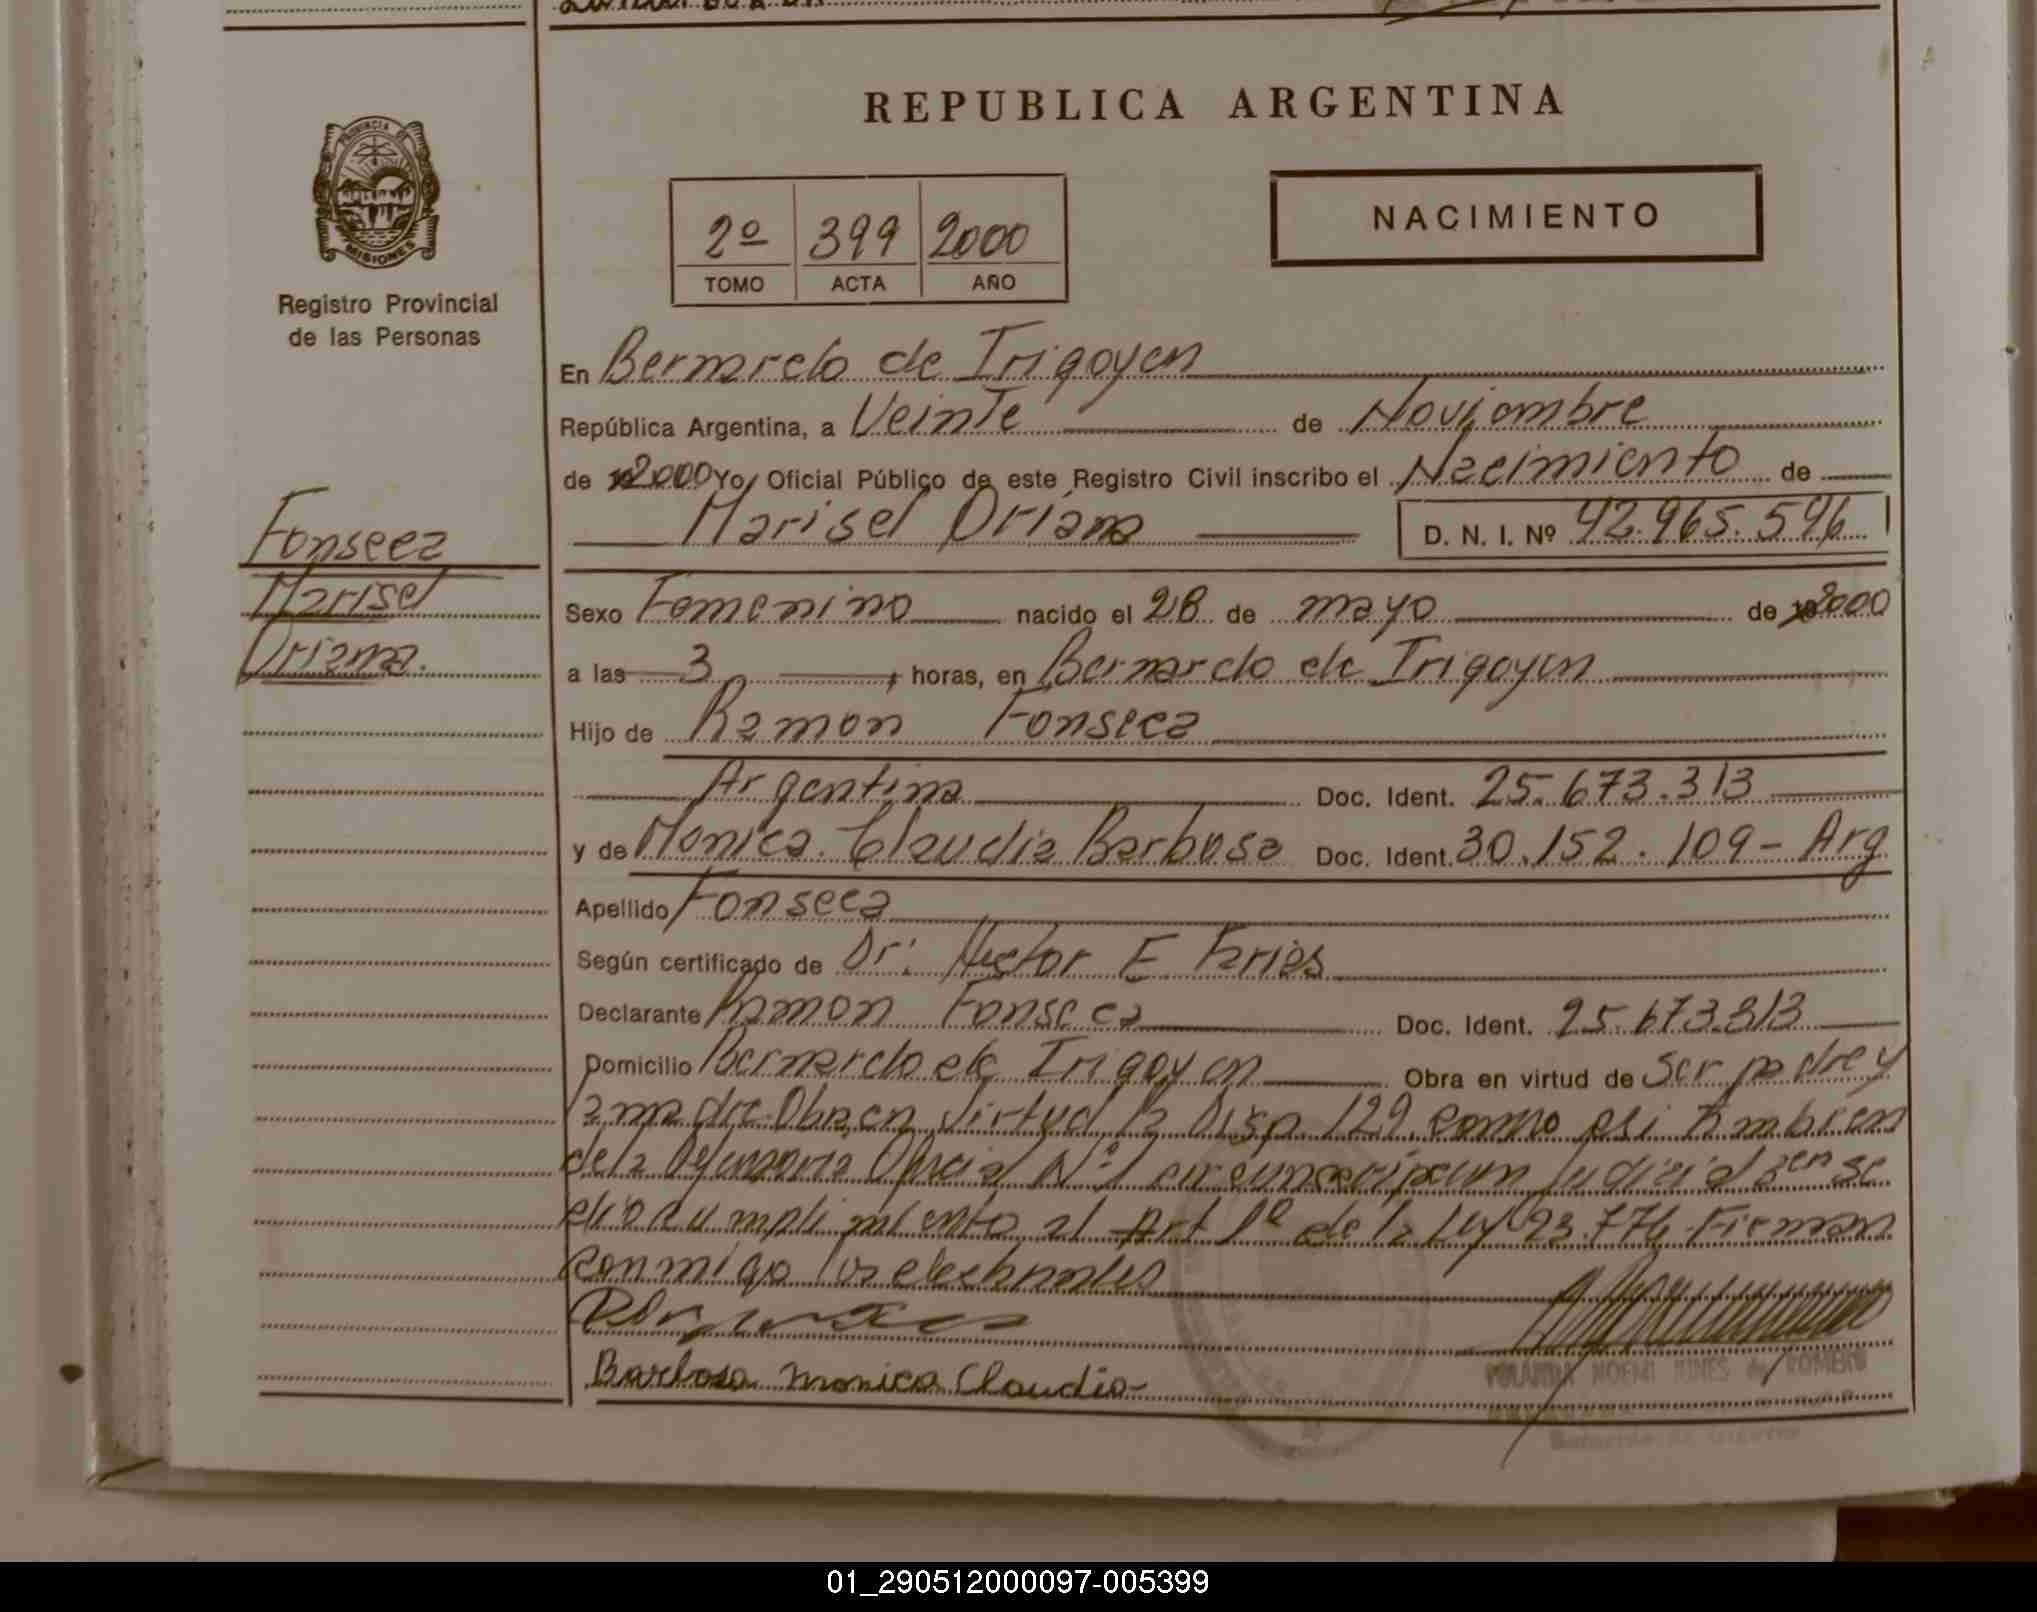 REPUBLICA ARGENTINA
PROVINCIA DE
MISIONES
Registro Provincial
de las Personas
2º 399 2000
TOMO ACTA AÑO
NACIMIENTO
Fonseca
Marisel
Oriana.
En Bernardo de Irigoyen
República Argentina, a Veinte de Noviembre
de 2000 Yo, Oficial Público de este Registro Civil inscribo el Nacimiento de
Marisel Oriana D. N. I. Nº 42.965.546
Sexo Femenino nacido el 28 de mayo de 2000
a las 3 horas, en Bernardo de Irigoyen
Hijo de Ramon Fonseca
Argentina Doc. Ident. 25.673.313
y de Monica Claudia Barbosa Doc. Ident. 30.152.109- Arg
Apellido Fonseca
Según certificado de Dr: Hector E
Declarante Ramon Fonseca Doc. Ident. 25.673.313
Domicilio Bernardo de Irigoyen Obra en virtud de Ser padre y
la madre. Obra en virtud la Disp 129 como asi tambien
de la Defensoria Oficial Nº 1 circunscripcion Judicial 3 en se
dio cumplimiento al Art 1º de la Ley 23.776 Firman
conmigo los declarantes
Barbosa Monica Claudia
NOEMI de ROMERO
01_290512000097-005399